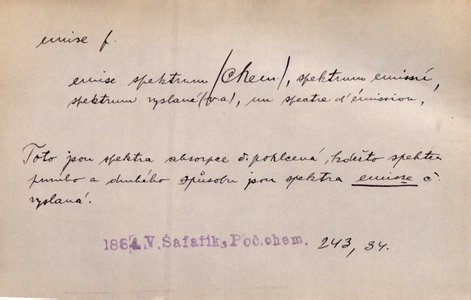 emise f.
emise spektrum (Chem), spektrum emissné,
spektrum vyslané (va), un spectre d'émission,
Toto jsou spektra absorpce č. pohlcená, kdežto spektra
prvního a druhého způsobu jsou spektra emisse č.
vyslaná.
1864. V. Šafařík, Poč. chem. 243, 34.